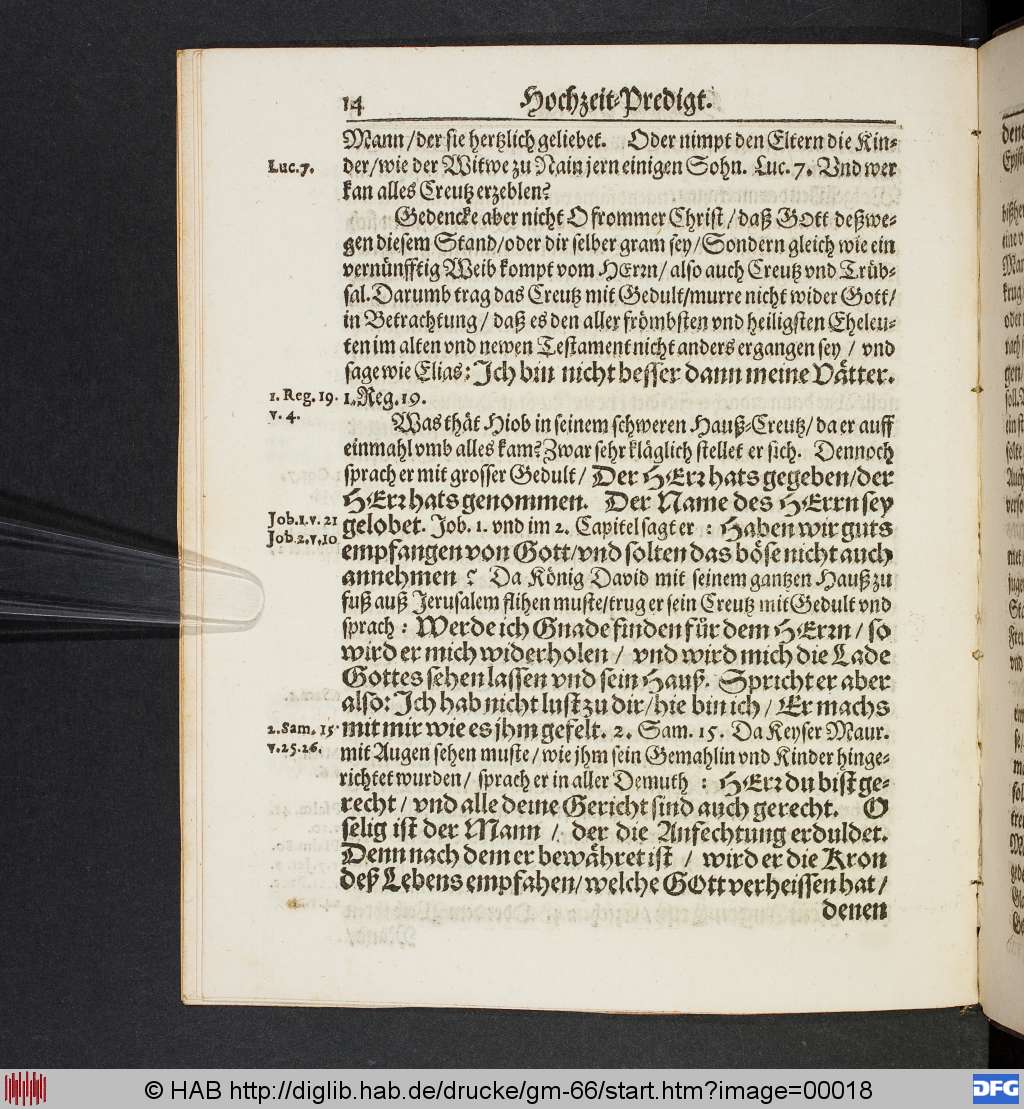 14 Hochzeit-Predigt.
Mann/der sie hertzlich geliebet. Oder nimpt den Eltern die Kin-
Luc. 7. der/wie der Witwe zu Nain jern einigen Sohn. Luc. 7. Vnd wer
kan alles Creutz erzeblen?
Gedencke aber nicht O frommer Christ/daß GOtt deßwe-
gen diesem Stand/oder dir selber gram sey/Sondern gleich wie ein
vernünfftig Weib kompt vom HErrn/also auch Creutz vnd Trüb-
sal. Darumb trag das Creutz mit Gedult/murre nicht wider Gott/
in Betrachtung/daß es den aller frömbsten vnd heiligsten Eheleu-
ten im alten vnd newen Testament nicht anders ergangen sey/vnd
sage wie Elias: Ich bin nicht besser dann meine Vätter.
1. Reg. 19. 1. Reg. 19.
v. 4. Was thät Hiob in seinem schweren Hauß-Creutz/da er auff
einmahl vmb alles kam? Zwar sehr kläglich stellet er sich. Dennoch
sprach er mit grosser Gedult/Der HErr hats gegeben/der
HErr hats genommen. Der Name des HErrn sey
Job. 1. v. 21 gelobet. Job. 1. vnd im 2. Capitel sagt er: Haben wir guts
Job. 2. v. 10 empfangen von Gott/vnd solten das böse nicht auch
annehmen? Da König David mit seinem gantzen Hauß zu
fuß auß Jerusalem flihen muste/trug er sein Creutz mit Gedult vnd
sprach: Werde ich Gnade finden für dem HErrn/so
wird er mich widerholen/vnd wird mich die Lade
Gottes sehen lassen vnd sein Hauß. Spricht er aber
also: Ich hab nicht lust zu dir/hie bin ich/Er machs
2. Sam. 15. mit mir wie es jhm gefelt. 2. Sam. 15. Da Keyser Maur.
v. 25. 26. mit Augen sehen muste/wie jhm sein Gemahlin vnd Kinder hinge-
richtet wurden/sprach er in aller Demuth: HErr du bist ge-
recht/vnd alle deine Gericht sind auch gerecht. O
selig ist der Mann/der die Anfechtung erduldet.
Denn nach dem er bewähret ist/wird er die Kron
deß Lebens empfahen/welche GOtt verheissen hat/
denen
© HAB http://diglib.hab.de/drucke/gm-66/start.htm?image=00018
DFG